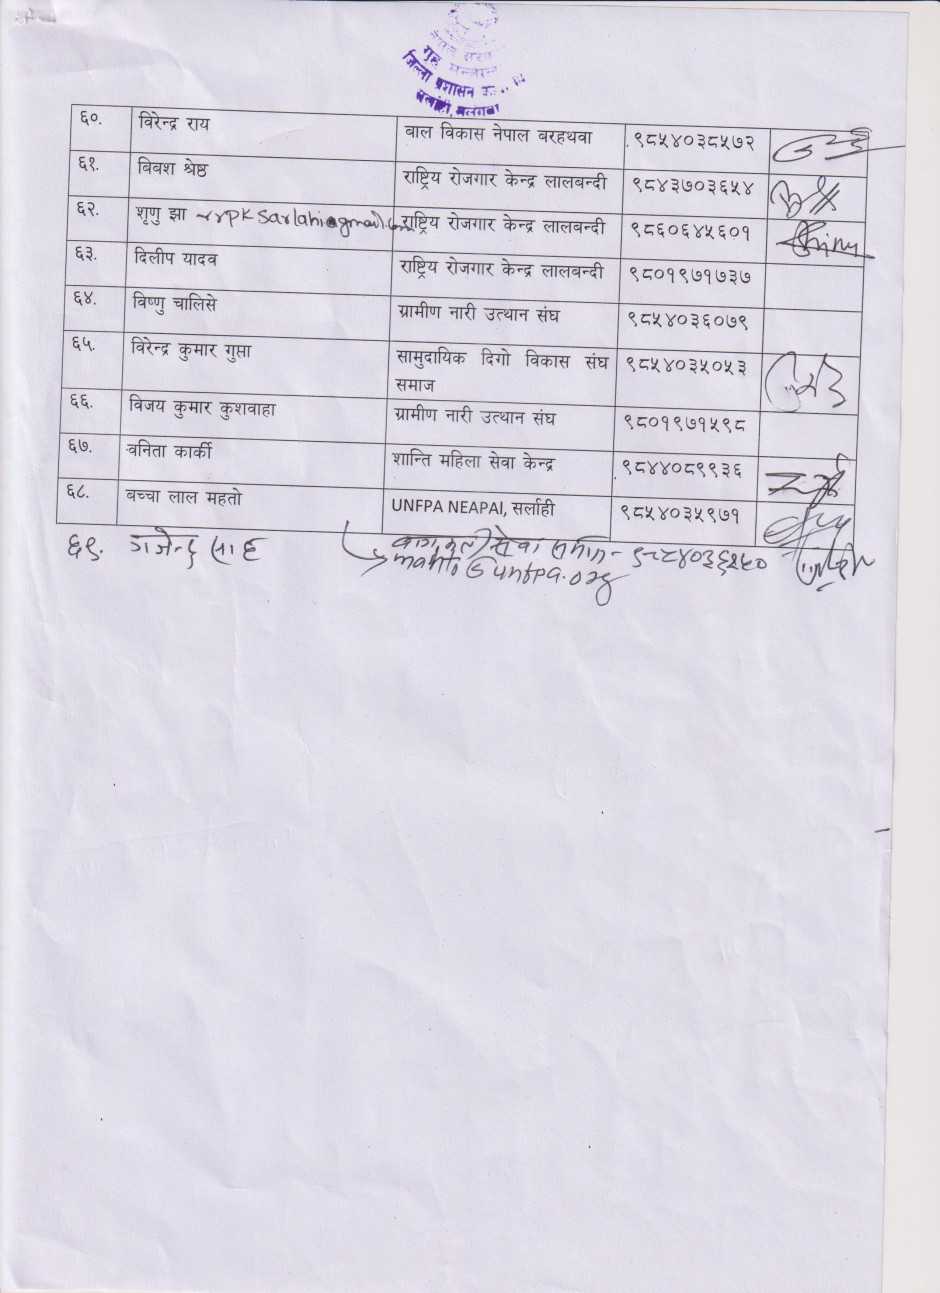 नेपाल सरकार
गृह मन्त्रालय
जिल्ला प्रशासन
सर्लाही, मलंगवा
६०. विरेन्द्र राय बाल विकास नेपाल बरहथवा ९८५४०३८५७२
६१. बिबश श्रेष्ठ राष्ट्रिय रोजगार केन्द्र लालबन्दी ९८४३७०३६५४
६२. शृणु झा rrpksarlahi@gmail.com राष्ट्रिय रोजगार केन्द्र लालबन्दी ९८६०६४५६०१
६३. दिलीप यादव राष्ट्रिय रोजगार केन्द्र लालबन्दी ९८०१९७१७३७
६४. विष्णु चालिसे ग्रामीण नारी उत्थान संघ ९८५४०३६०७९
६५. विरेन्द्र कुमार गुप्ता सामुदायिक दिगो विकास संघ ९८५४०३५०५३
समाज
६६. विजय कुमार कुशवाहा ग्रामीण नारी उत्थान संघ ९८०१९७१५९८
६७. वनिता कार्की शान्ति महिला सेवा केन्द्र ९८४४०८९९३६
६८. बच्चा लाल महतो UNFPA NEAPAl, सर्लाही ९८५४०३५९७१
६९. गजेन्द्र साह सेवा
mahto@unfpa.org